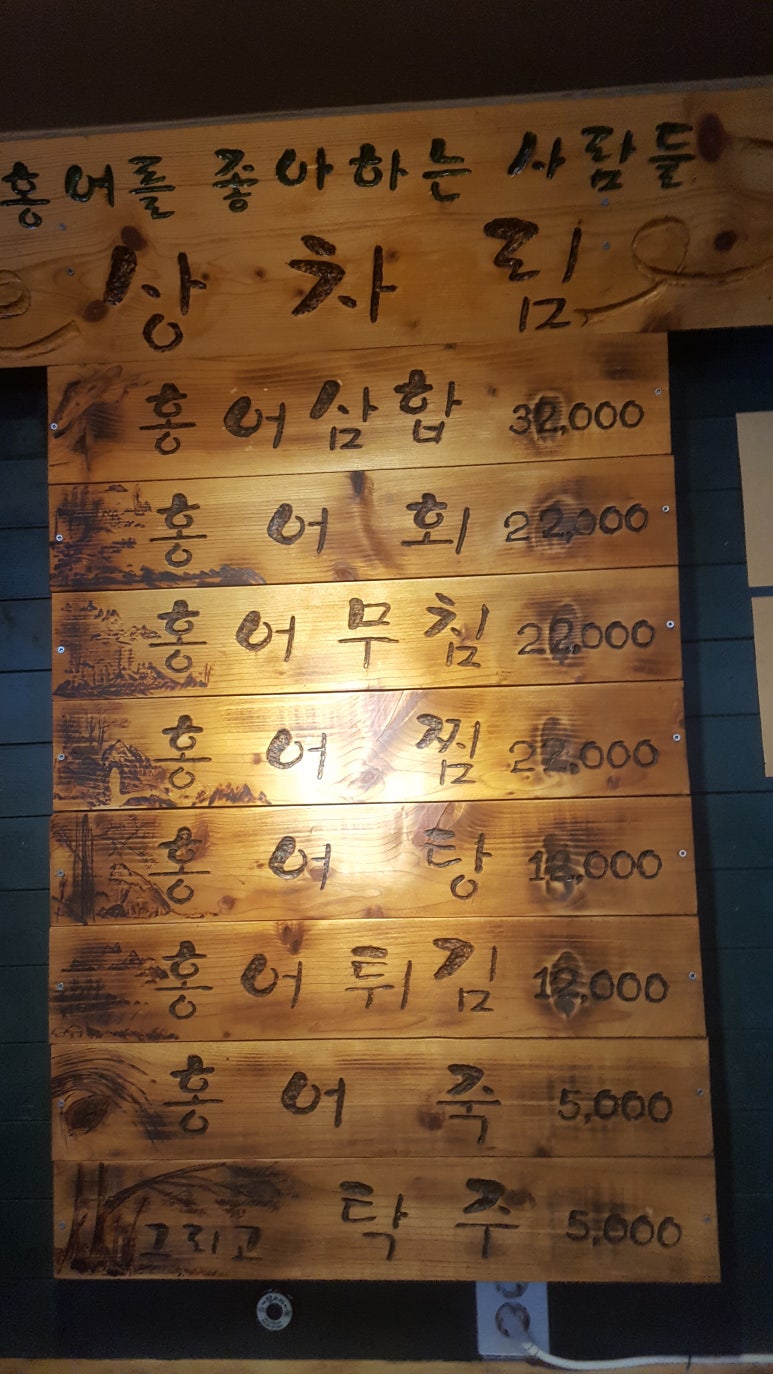 홍어를 좋아하는 사람들
상차림
홍어삼합 32,000
홍어회 22,000
홍어무침 22,000
홍어찜 22,000
홍어탕 12,000
홍어튀김 12,000
홍어죽 5,000
그리고 탁주 5,000